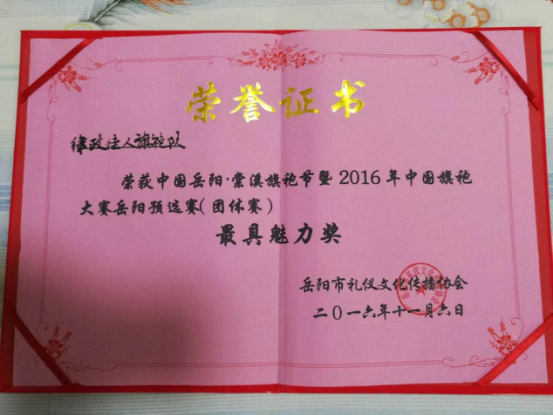 荣誉证书
律政佳人旗袍队
荣获中国岳阳·棠溪旗袍节暨2016年中国旗袍
大赛岳阳预选赛(团体赛)
最具魅力奖
岳阳市礼仪文化传播协会
二〇一六年十一月六日